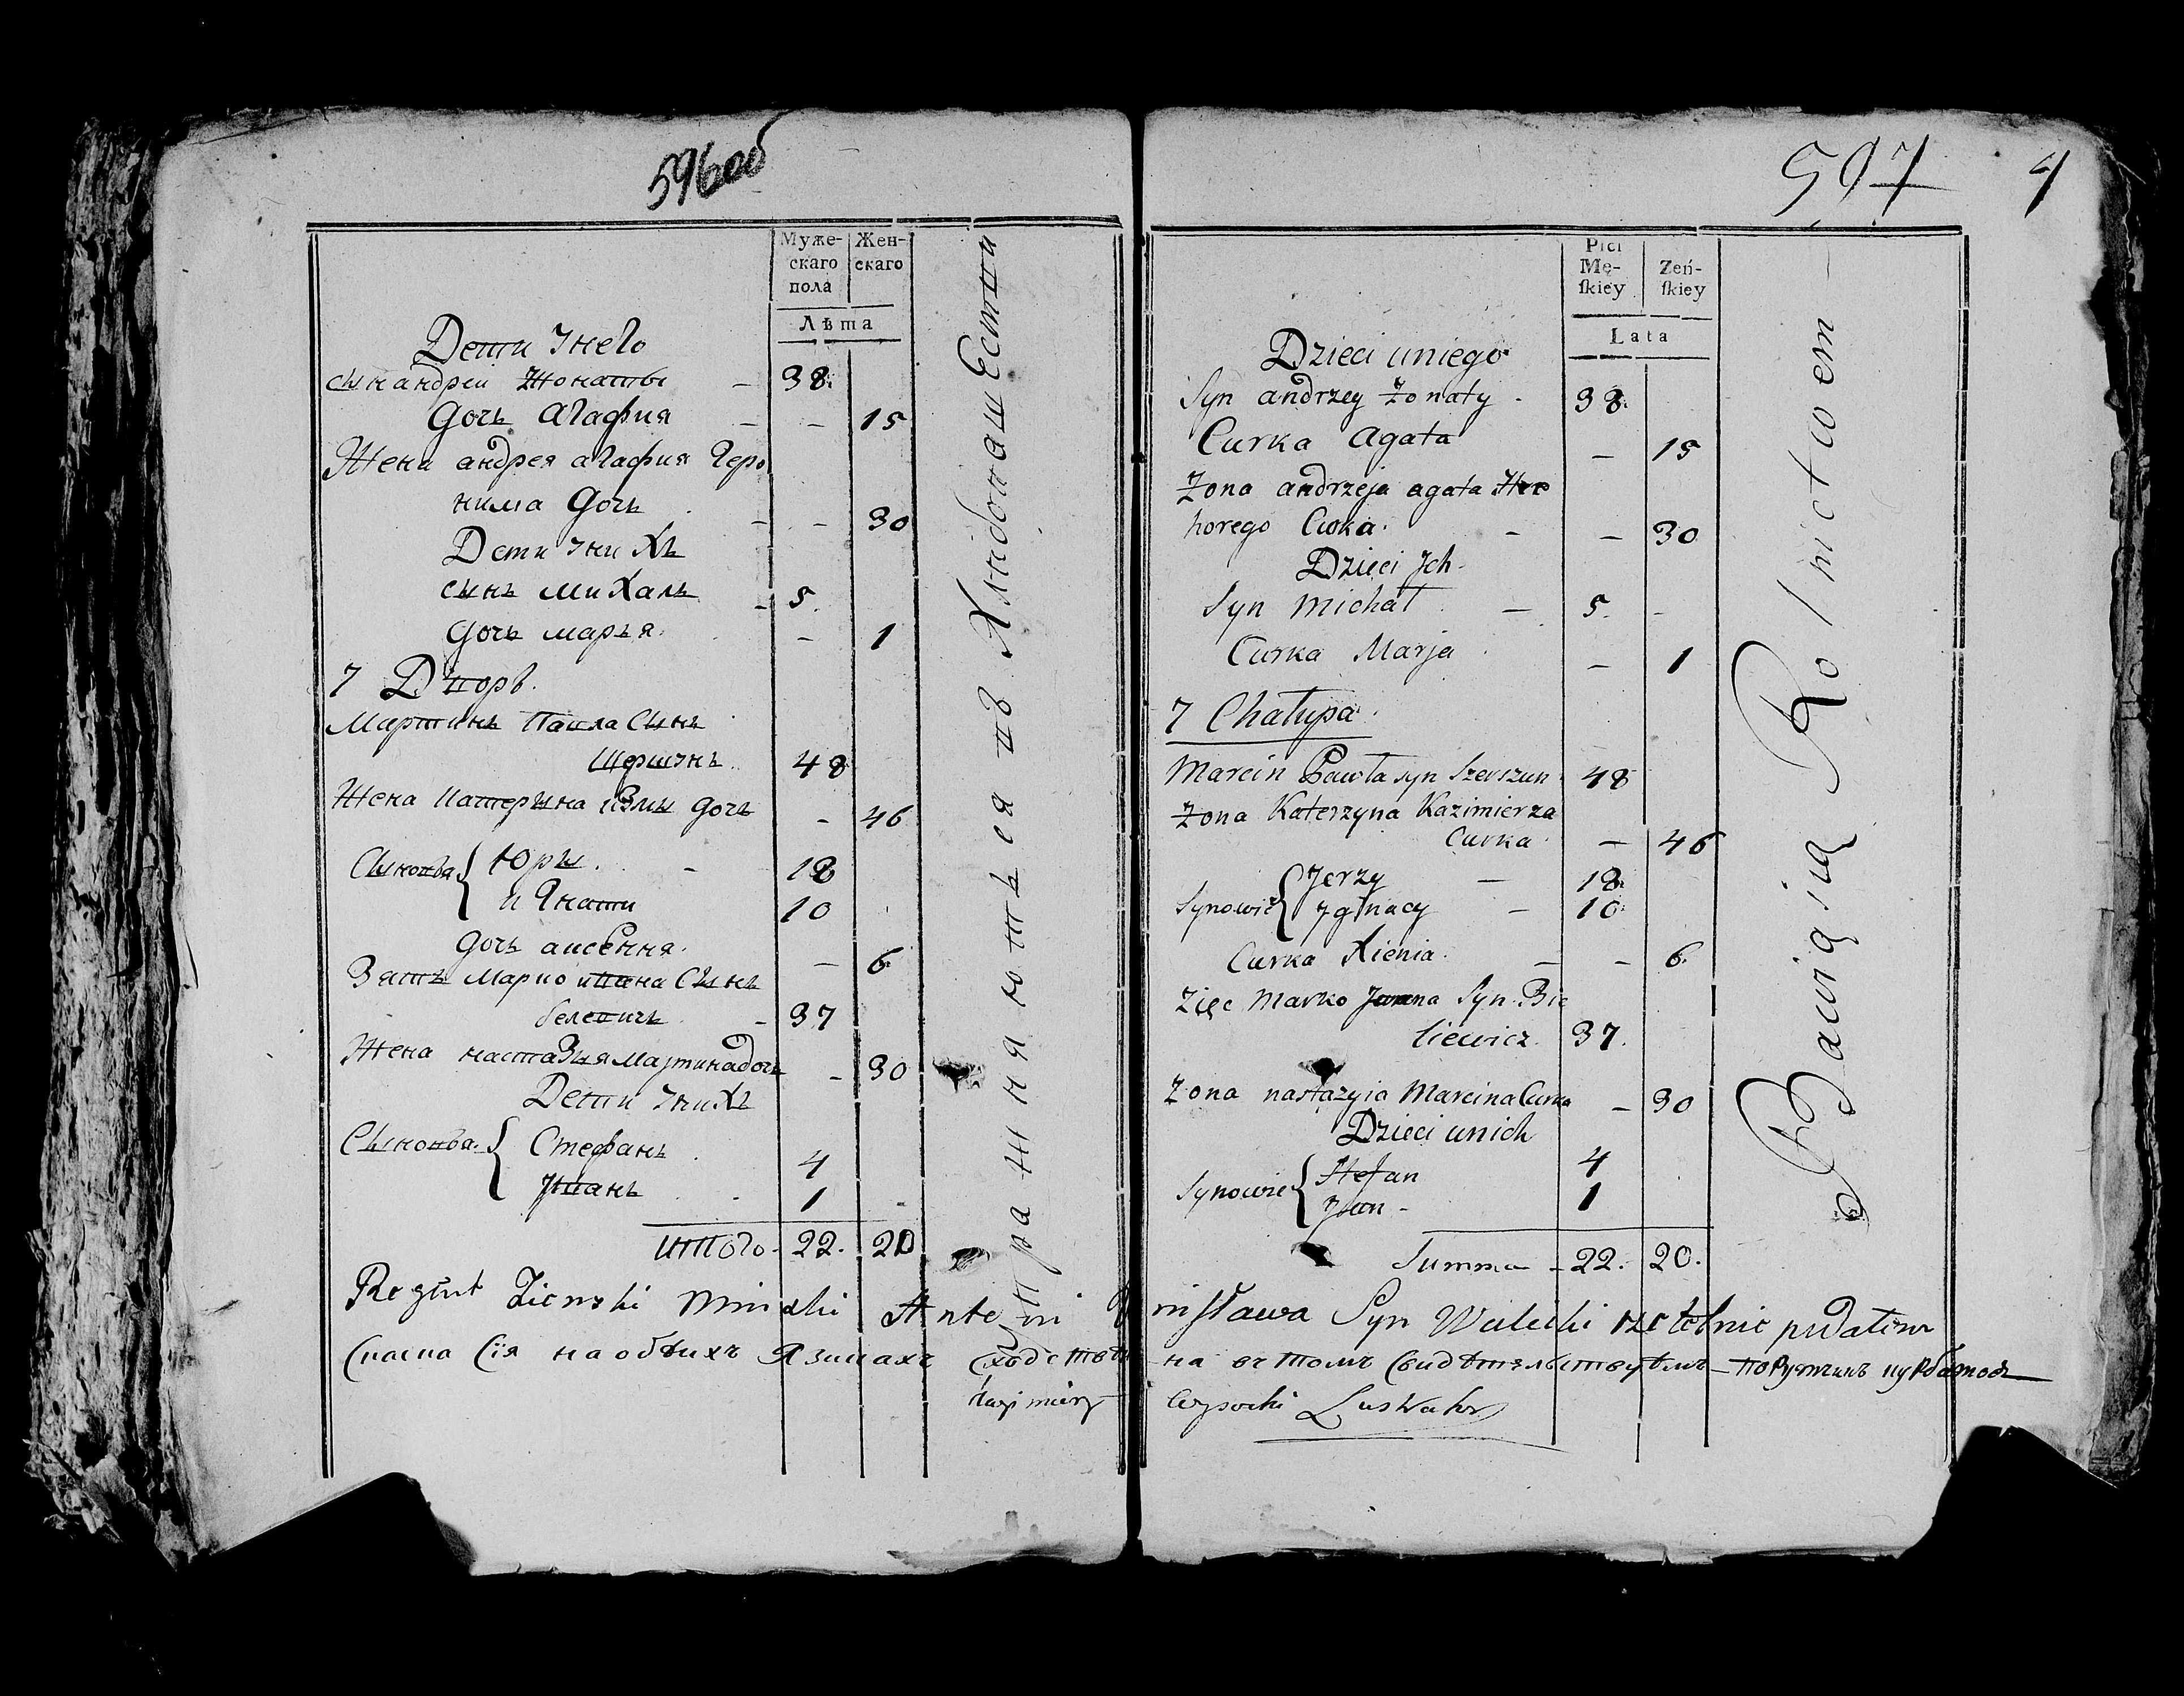 596об
Муже-
скаго
пола
Жен-
скаго
Лѣта
Дети Унего
сынандрей Жонаты 38.
дочь агафия 15
Жена андрея агафия Геро
нима дочь 30
Дети УниХъ
сынъ миХалъ 5.
дочь марья. 1
7 Дворъ.
Мартинъ Павла Сынъ
Шершунъ. 48
Жена Катерына дочь 46
Сыновья Юры. 18
и Гнати 10
дочь аксенья. 6.
Зять Марко ивана Сынъ
белевичъ 37
Жена настазыя Мартинадочь 30
Дети УниХъ
Сыновья. Стефанъ 4
Иванъ 1
итого. 22. 20
Упражняются въ Хлидопашестви
597
4
Płci
Mę-
ſkiey
Zeń-
ſkiey
Lata
Dzieci uniego
Syn andrzey Żonaty 38.
Curka agata 15
Żona andrzeja agata
horego Curka. 30
Dzieci Jch
Syn michał 5.
Curka Marja 1
7 Chałupa
Marcin Pawła syn Szerszun 48
Żona Katerzyna Kazimierza
Curka 46
Synowie Jerzy 18.
Ygnacy 10.
Curka Xienia. 6.
Zięc Marko Jwana Syn. Bie
liewicz 37.
Żona nastazyia Marcina Curka 30
Dzieci unich
Synowie Stefan 4
Jwan 1
Summa 22. 20.
Bawią się Rolnictwem
Regent Ziemski Minski Antoni
nisława Syn
сія наобѣихъ Языкахъ сходственна въ томъ Свидѣтельствуемъ
Kazimierz Wysocki Lustrator